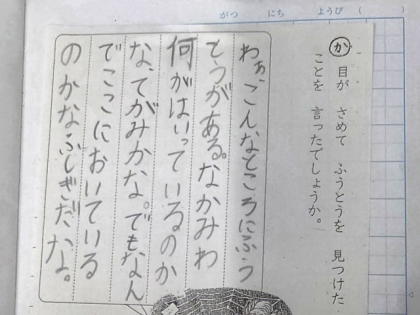 がつ にち ようび ( )
か 目が さめて ふうとうを 見つけた
ことを 言ったでしょうか。
わあ、こんなところにふう
とうがある。なかみわ
何がはいっているのか
な、てがみかな。でもなん
でここにおいている
のかな、ふしぎだな。